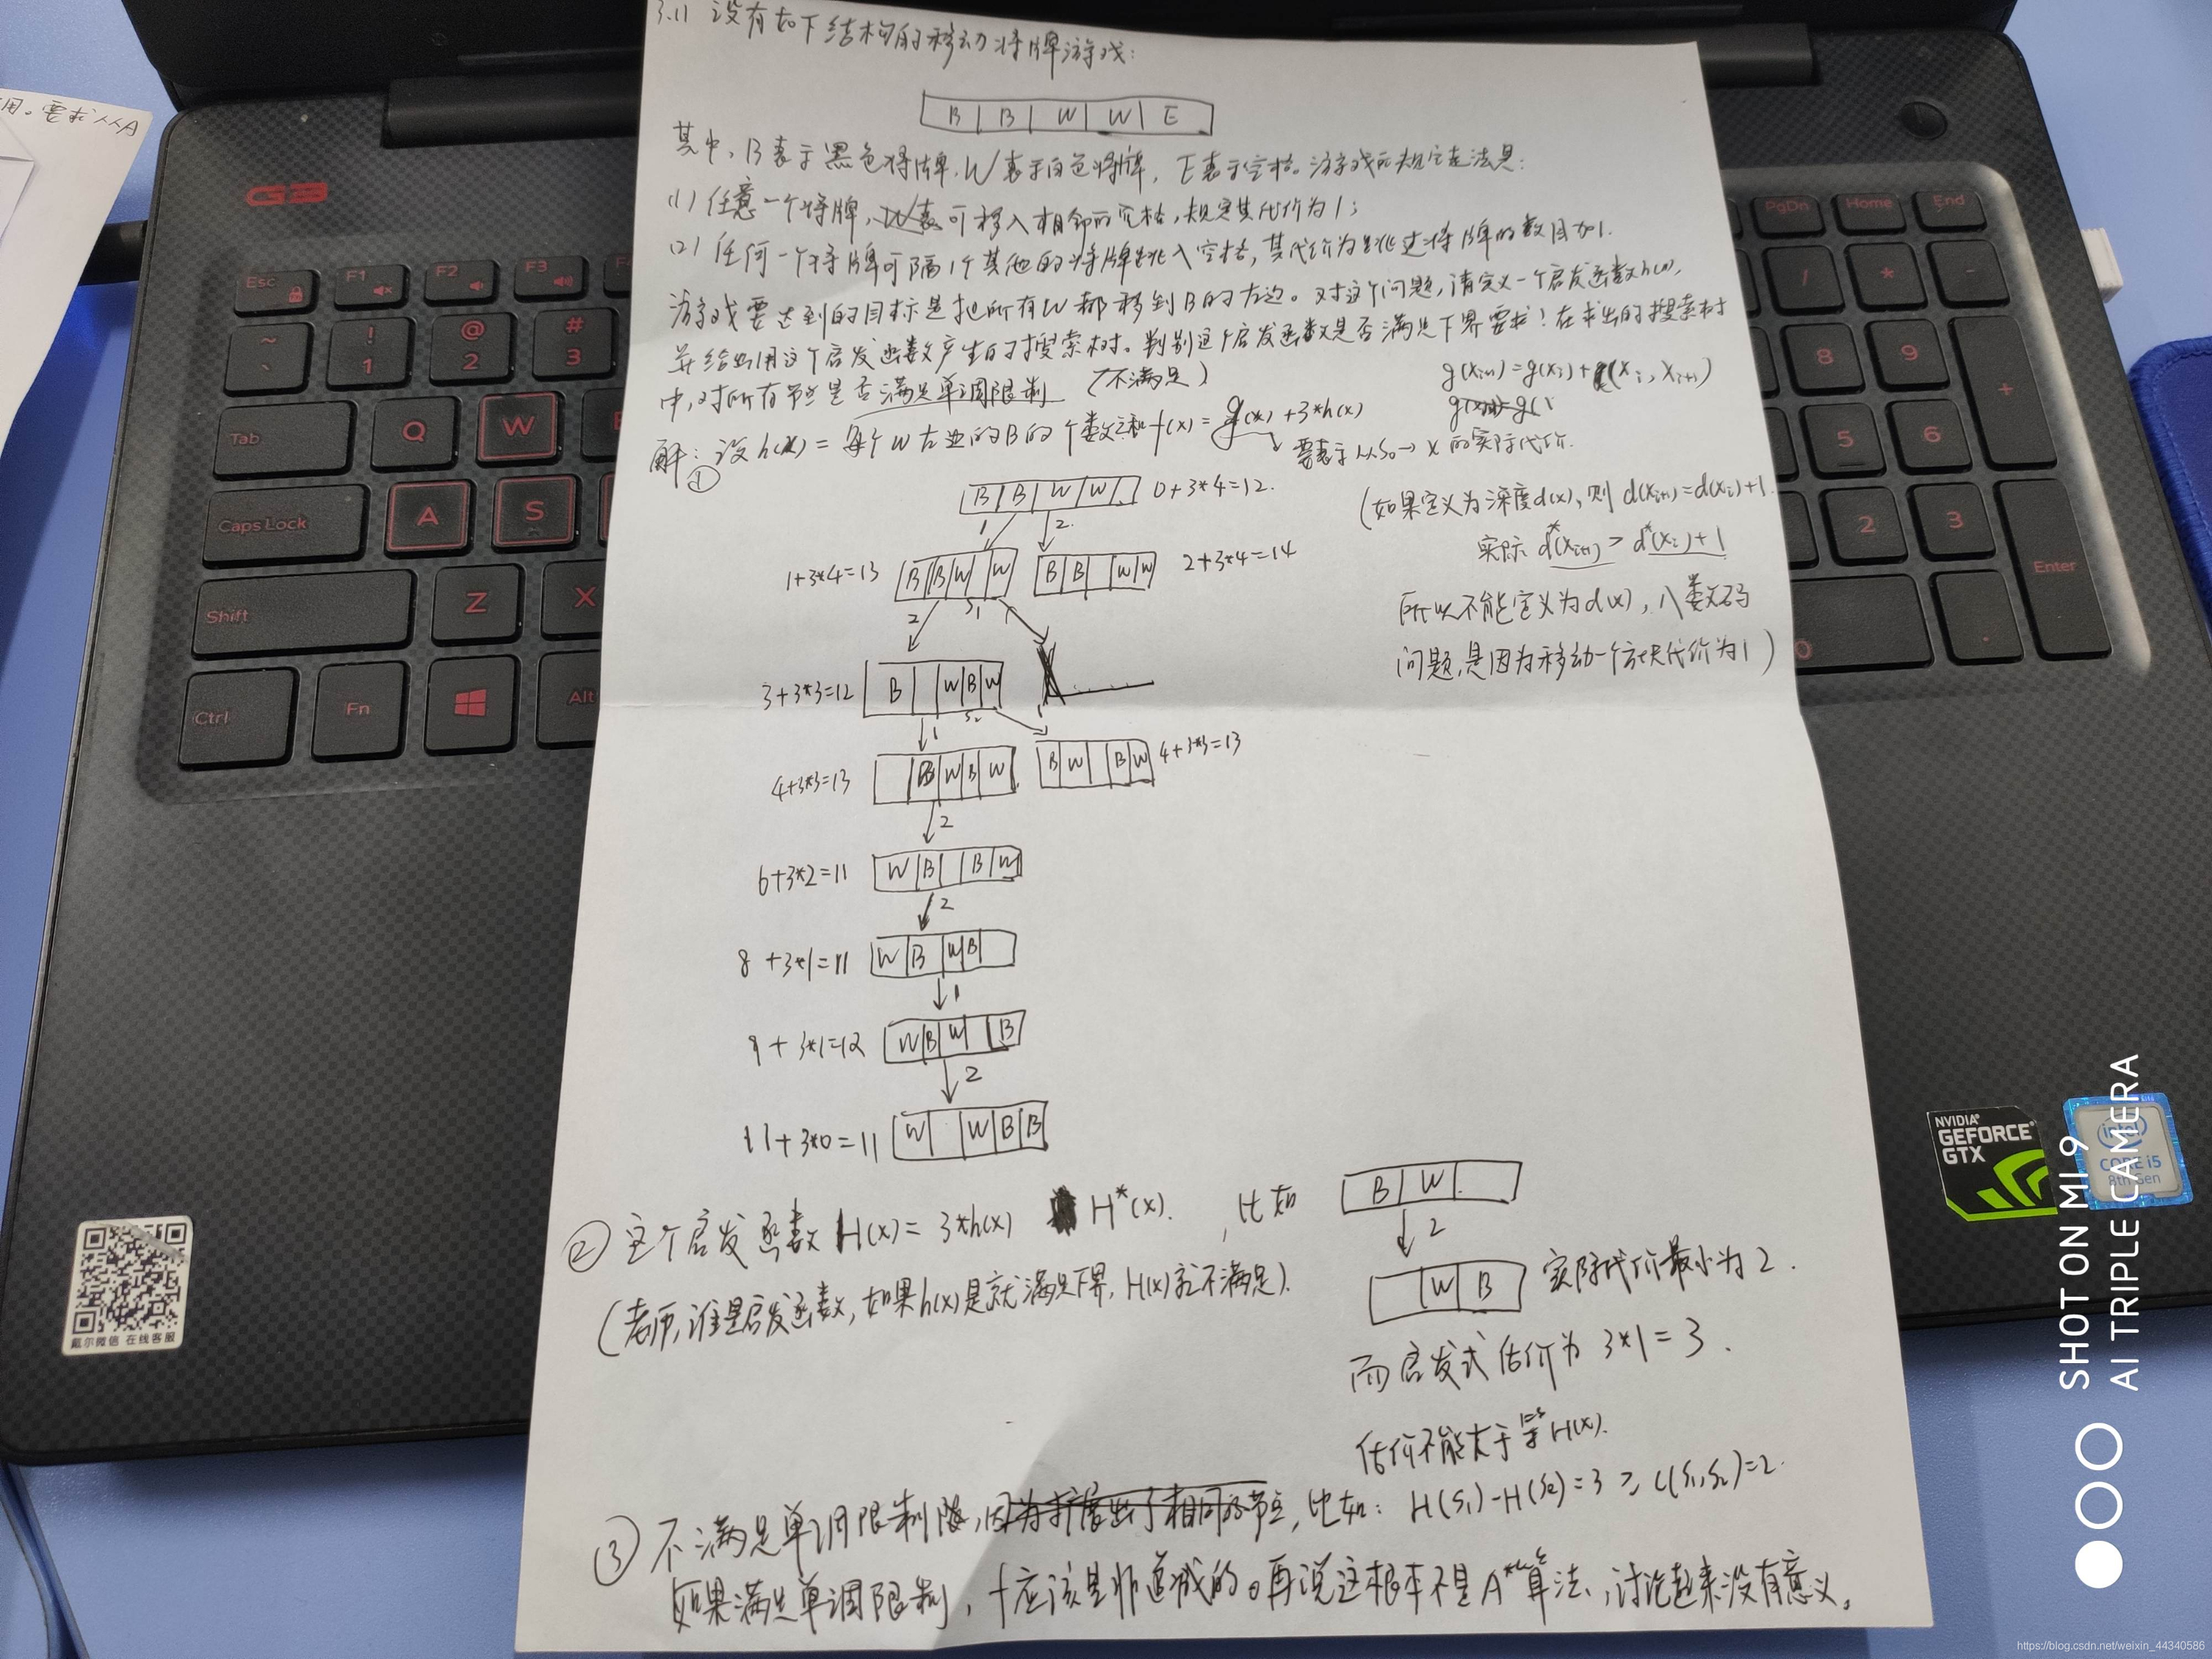 3.11 设有如下结构的移动将牌游戏:
B B W W E
其中, B表示黑色将牌, W表示白色将牌, E表示空格。游戏的规定走法是:
(1) 任意一个将牌, 可移入相邻的空格, 规定其代价为1;
(2) 任何一个将牌可隔1个其他的将牌跳入空格, 其代价为跳过将牌的数目加1.
游戏要达到的目标是把所有W都移到B的左边。对这个问题, 请定义一个启发函数h(n),
并给出用这个启发函数产生的搜索树。判别这个启发函数是否满足下界要求! 在求出的搜索树
中, 对所有节点是否满足单调限制 (不满足)
g(xi+1)=g(xi)+c(xi, xi+1)
解: 设h(x) = 每个W左边的B的个数之和 f(x) = g(x) +3*h(x)
要表示从S0→x的实际代价.
①
B B W W 0+3*4=12.
(如果定义为深度d(x), 则 d(xi+1)=d(xi)+1
实际 d*(xi+1) > d*(xi)+1
所以不能定义为d(x), 八数码
问题, 是因为移动一个方块代价为1)
1 2
1+3*4=13 B B W W B B W W 2+3*4=14
2 S1 1
3+3*3=12 B W B W
1 S2
4+3*3=13 B W B W B W B W 4+3*3=13
2
6+3*2=11 W B B W
2
8+3*1=11 W B W B
1
9+3*1=12 W B W B
2
11+3*0=11 W W B B
② 这个启发函数 H(x)= 3*h(x) H*(x). , 比如 B W
2
(老师, 谁是启发函数, 如果h(x)是就满足下界, H(x)就不满足).
W B 实际代价最小为2.
而启发式估价为 3*1=3.
估价不能大于等于H(x).
③ 不满足单调限制, 因为扩展出了相同的节点, 比如: H(S1)-H(S2)=3 ≥ C(S1,S2)=2.
如果满足单调限制, f应该是非递减的。再说这根本不是A*算法, 讨论起来没有意义。
用。要求从A
GB
PgDn Home End
Esc F1 F2 F3
~ ` ! 1 @ 2 # 3
Tab Q W
Caps Lock A S
Shift Z X
Ctrl Fn Alt
/ * -
8 9 +
5 6
2 3
Enter
NVIDIA
GEFORCE
GTX
intel
CORE i5
8th Gen
戴尔微信 在线客服
SHOT ON MI 9
AI TRIPLE CAMERA
https://blog.csdn.net/weixin_44340586